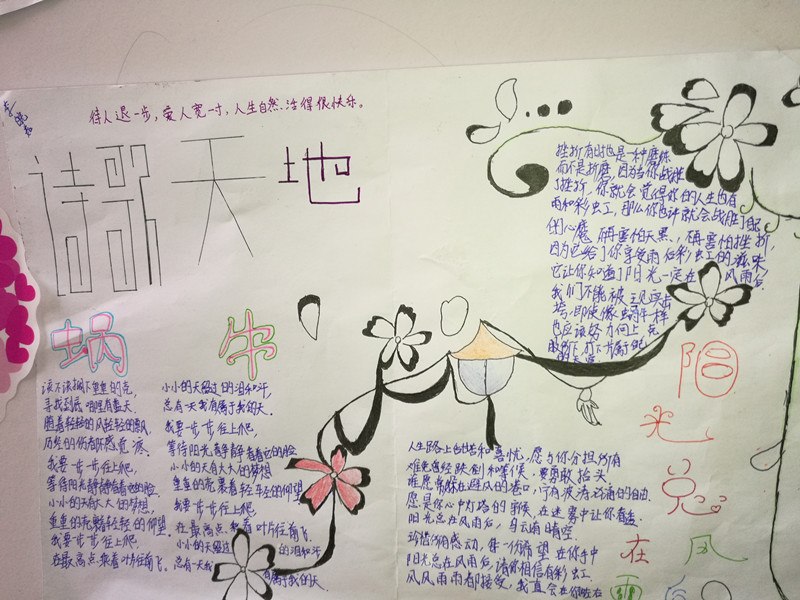 待人退一步，爱人宽一寸，人生自然活得很快乐。
诗歌天地
挫折有时也是一种磨炼
而不是折磨，因为当你战胜
了挫折，你就会觉得你的人生也有
雨和彩虹，那么你也许就会战胜了自己
的心魔，再害怕天黑，再害怕挫折，
因为它给了你享受雨后彩虹的滋味，
它让你知道了阳光一定在风雨后
我们不能被
即使像蜗牛一样
也应该努力向上
蜗牛
该不该搁下重重的壳，
寻找到底哪里有蓝天
随着轻轻的风轻轻的飘
历经的伤都不感觉疼
我要一步一步往上爬，
等待阳光静静看着它的脸
小小的天有大大的梦想
重重的壳裹着轻轻的仰望
我要一步一步往上爬
在最高点乘着叶片往前飞
小小的天经过的泪和汗
总有一天我有属于我的天
我要一步一步往上爬
等待阳光静静看着它的脸
小小的天有大大的梦想
重重的壳裹着轻轻的仰望
我要一步一步往上爬
在最高点乘着叶片往前飞
小小的天经过 的泪和汗
总有一天我 有属于我的天
阳光总在风雨后
人生路上甜苦和喜忧，愿与你分担所有
难免曾经跌倒和等候，要勇敢抬头
谁愿常躲在避风的港口，宁有波涛汹涌的自由
愿是你心中灯塔的守候，在迷雾中让你看透
阳光总在风雨后，乌云上有晴空
珍惜所有感动，每一份希望在你手中
阳光总在风雨后，请你相信有彩虹
风风雨雨都接受，我一直会在你左右